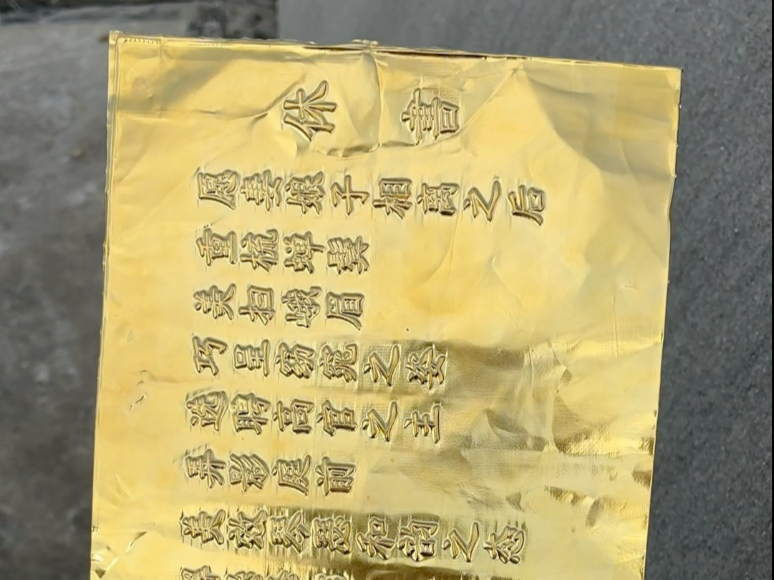 休書
愿妻娘子相离之后
重梳蝉鬓
美扫娥眉
巧呈窈窕之姿
选聘高官之主
弄影庭前
美效琴瑟和韵之态